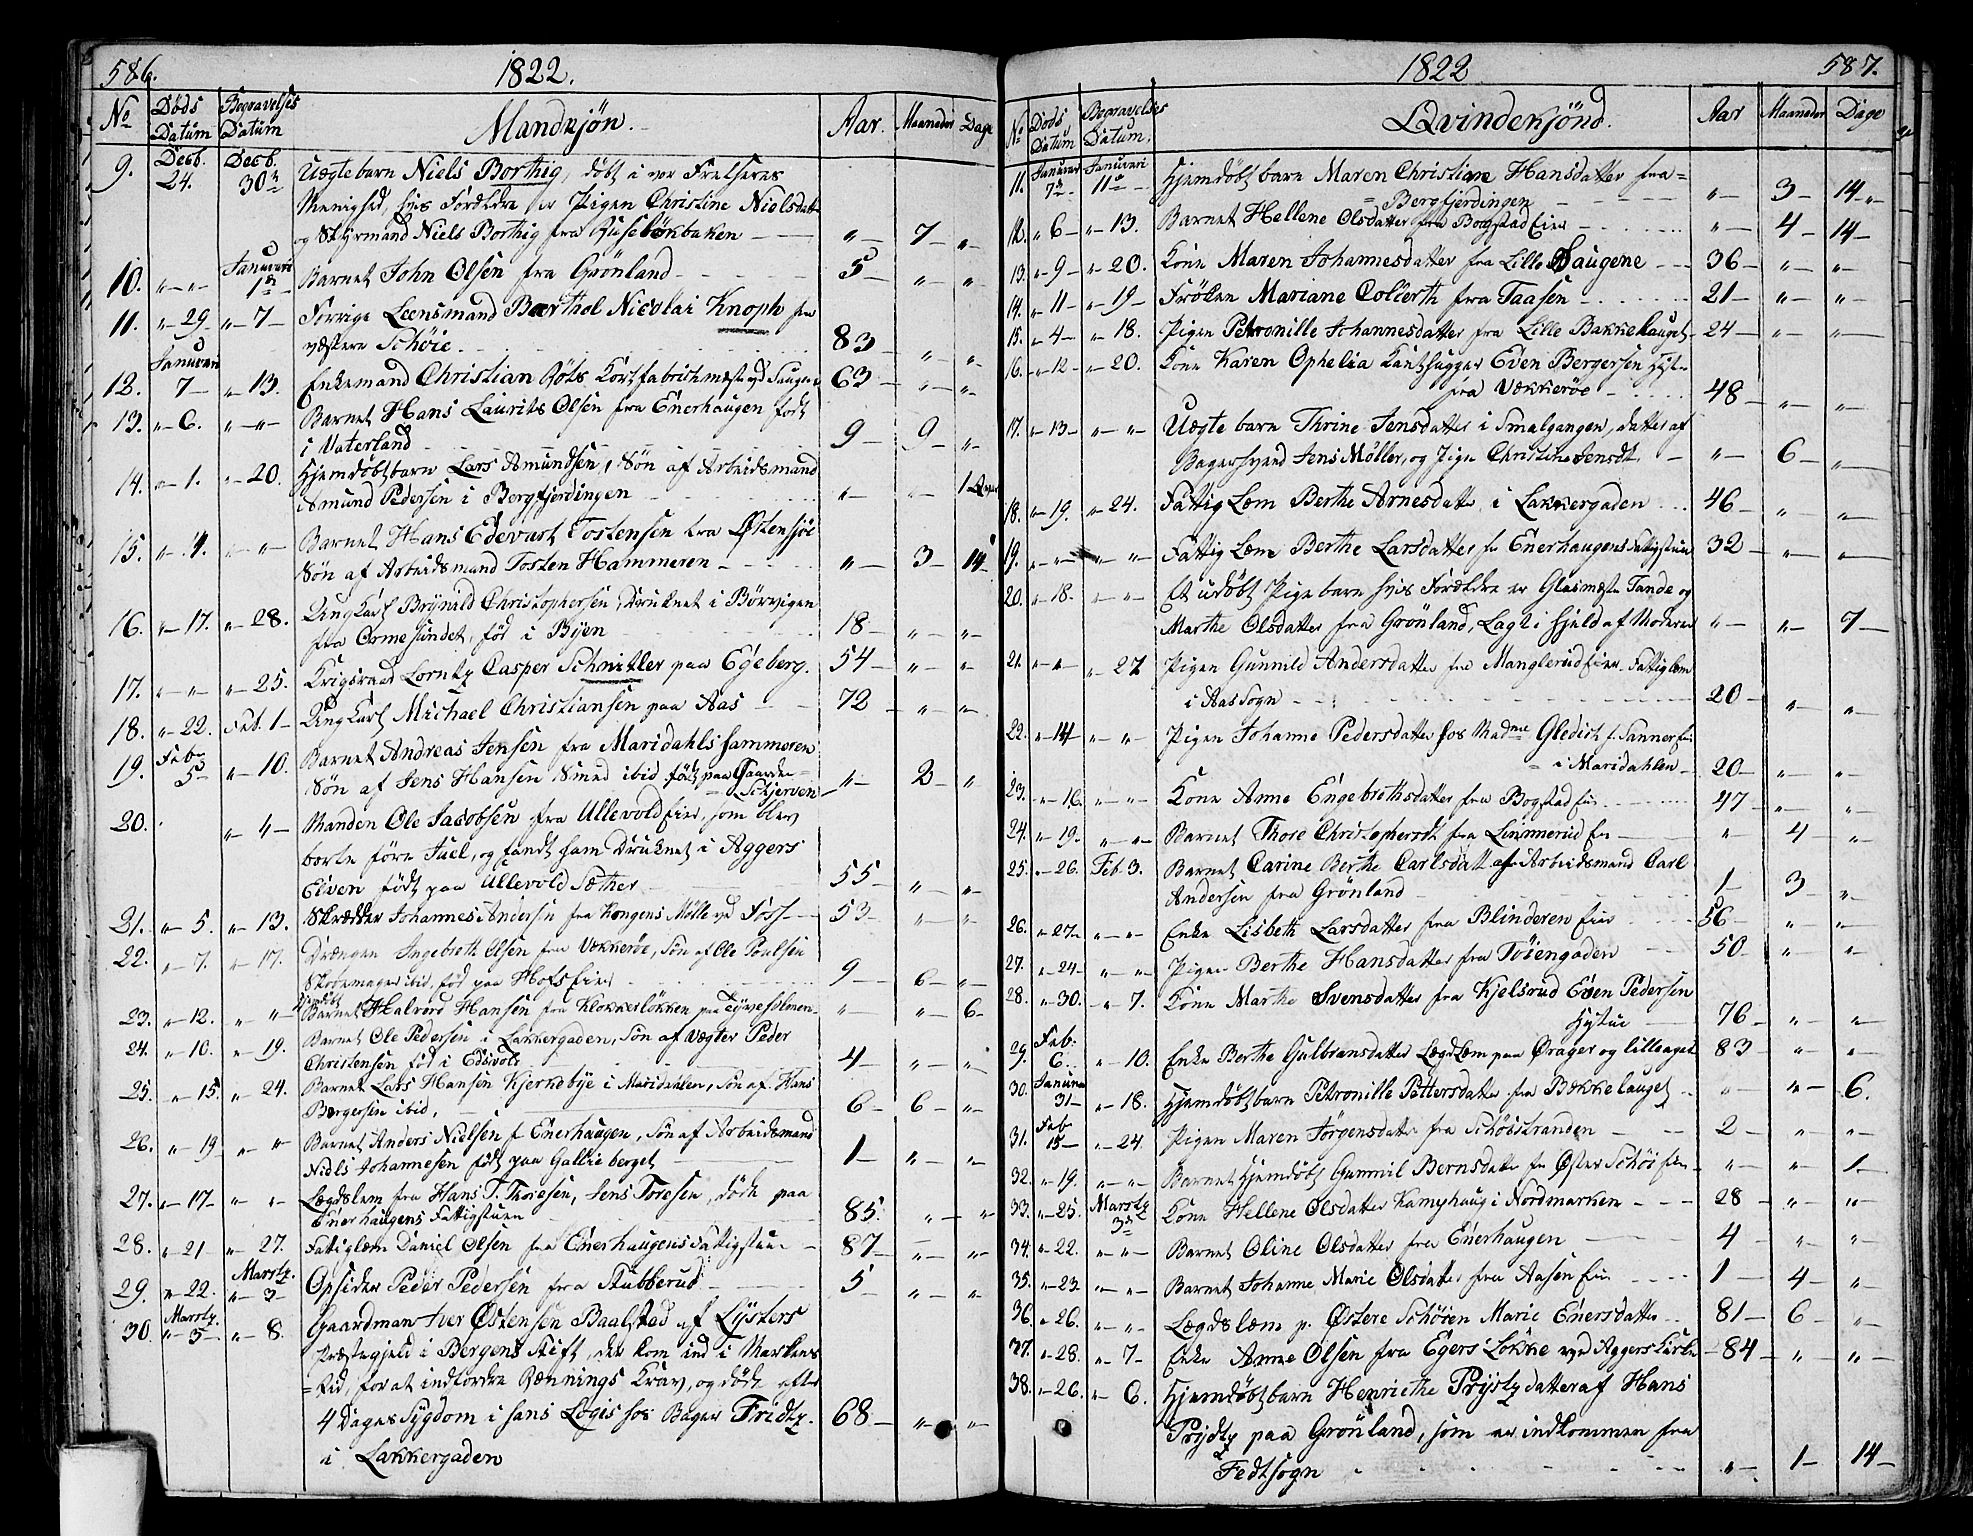 586.
1822.
No Døds Datum Begravelses Datum Mandkjøn. Aar. Maaneder Dage
9. Decb. 24. Decb. 30te Uægte barn Niels Borthig, døbt i vor Frelseres
Menighed, hvis Forældre er Pigen Christine Nielsdatter
og Styrmand Niels Borthig fra Ruseløkbaken " 7 "
10. " " Januari 1te Barnet John Olsen fra Grønland 5 " "
11. " 29 " 7 Forrige Leensmand Barthol Nicolai Knoph fra
væstere Schøie 83 " "
12. Januari 7 " 13. Enkemand Christian Røts Kortfabrichmester vd Saugene 63 " "
13. " 6. " " Barnet Hans Laurits Olsen fra Enerhaugen født
i Vaterland 9 9 "
14. " 1. " 20. Hjemdøbt barn Lars Amundsen, Søn af Arbeidsmand
Amund Pedersen i Bergfjerdingen " " 1
15. " 4. " " Barnet Hans Edevart Tostensen fra Østensjøe
Søn af Arbeidsmand Tosten Hammeren " 3 14
16. " 17. " 28. Ung Karl Brynild Christophersen, druknet i Børvigen
fra Ormesundet, fød i Byen 18 " "
17. " " " 25. Krigsraad Lorntz Casper Schnitler paa Egeberg. 54 " "
18. " 22. Feb. 1 Ung Karl Michael Christiansen paa Aas 72 " "
19. Feb. 5 " 10. Barnet Andreas Jensen fra Maridahls hammeren
Søn af Jens Hansen Smed ibid født paa Gaarden
Skjerven " 2 "
20. " " Manden Ole Jacobsen fra Ullevold Eier, som blev
borte førn Juel, og fandt ham druknet i Aggers
Elven født paa Ullevold Sæther 55 " "
21. " 5. " 13. Skrædder Johannes Andersen fra Kongens Mølle vd Foss 53 " "
22. " 7. " 17. Drængen Ingebreth Olsen fra Vækkerøe, Søn af Ole Poulsen
Skoemager ibid, fød paa Hofs Eier 9 6 "
23. " 12. " " Hjemdøbt Barnet Halvord Hansen fra Klokkerløkken paa Tyveholmen " " 6
24. " 10. " 19. Barnet Ole Pedersen i Lakkergaden, Søn af Vægter Peder
Christensen fød i Edsvold 4 " "
25. " 15. " 24. Barnet Lars Hansen Kjerndbye i Maridahlen, Søn af Hans
Bergersen ibid, 6 6 "
26. " 19 " " Barnet Anders Nielsen f Enerhaugen, Søn af Arbeidsmand
Niels Johannesen født paa Gallie berget 1 " "
27. " 17 " " Lægdslem fra Hans T. Thoresen, Jens Toresen, døde paa
Enerhaugens Fattigstuen 85. " "
28. " 21 " 27. Fattiglæm Daniel Olsen fra Enerhaugens Fattigstue 87 " "
29. " 22. Martz. " 3 Opsider Peder Pedersen fra Stubberud 5 " "
30. Martz. " 5 " 8. Gaardman Iver Østensen Baalstad af Lysters
Præstegjeld i Bergens Stift, der kom ind i Markens
Tid, for at indfordre Pænnings Krav, og døde efter
4 Dages Sygdom i hans Logis hos Bager Fridtz. 68 " "
i Lakkergaden
1822
587.
No Døds Datum Begravelses Datum, Qvindekjønd. Aar Maaneder Dage
11. Januar 7de Januari 11te Hjemdøbt barn Maren Christiane Hansdatter fra
Bergfjerdingen " 3 14
12. " 6 " 13. Barnet Hellene Olsdatter fra Bogstad Eier " 4 14
13. " 9 " 20. Kone Maren Johannesdatter fra Lille Saugene 36 " "
14. " 11 " 19 Frøken Mariane Collerth fra Taasen 21 " "
15. " 4 " 18. Pigen Petronille Johannesdatter fra Lille Bakkehauget 24 " "
16. " 12 " 20. Kone Karen Ophelia Kanthugger Even Bergersen Hyst.
fra Vækkerøe 48 " "
17. " 13 " " Uægte barn Thrine Jensdatter i Smalgangen, datter af
Bagersvend Jens Møller, og Pige Christine Jensdt. " 6 "
18. " 19. " 24. Fattig Læm Berthe Arnesdatter i Lakkergaden 46 " "
19. " " " " Fattig Læm Berthe Larsdatter fr Enerhaugens Fattigstue 32 " "
20. " 18. " " Et udøbt Pige barn hvis Forældre er Glasmester Tande og
Marthe Olsdatter fra Grønland, Lagt i hjeld af Moderen " " 7
21. " " " 27 Pigen Gunnild Andersdatter fra Manglerud Eier Fattiglem
i Aas Sogn 20 " "
22. " 14 " " Pigen Johanne Pedersdatter hos Madme Gledich f. Sanner Eie
i Maridahlen 20 " "
23. " 16. " " Kone Anne Engebrethsdatter fra Bogstad Eie 47 " "
24. " 19. " " Barnet Thore Christophersdt fra Linnerud Eie " 4 "
25. " 26. Feb. 3. Barnet Carine Berthe Carlsdatt af Arbeidsmand Carl
Andersen fra Grønland 1 3 "
26. " 27 " " Enke Lisbeth Larsdatter fra Blinderen Eie 56 " "
27. " 24 " " Pigen Berthe Hansdatter fra Tøiengaden 50 " "
28. " 30. " 7. Kone Marthe Svensdatter fra Kjelsrud Even Pedersen
Hystue 76 " "
29. Feb. 6. " 10. Enke Berthe Gulbransdatter Lægdlem paa Ørager og lilleager 83 " "
30. Januar 31 " 18. Hjemdøbt barn Petronille Pettersdatter fra Bækkelauget " " 6.
31. Feb. 15 " 24. Pigen Maren Jørgensdatter fra Schøistranden 2 " "
32. " 19. " " Barnet Hjemdøbt Gunnil Bernsdatter fra Øster Schøi Eier " " 1.
33. " 25. Martz 3de Kone Hellene Olsdatter Kamphaug i Nordmarken 28 " "
34. " 22. " " Barnet Oline Olsdatter fra Enerhaugen 4 " "
35. " 23. " " Barnet Johanne Marie Olsdatter fra Aasen Eie 1 4 "
36. " 26. " " Lægdslæm p. Østere Schøien Marie Enersdatter 81 6 "
37. " 28. " 7 Enke Anne Olsen fra Egers Løkke ved Aggers Kirke 84 " "
38. " 26. " 6. Hjemdøbt barn Henriethe Prystz datter af Hans
Prydtz paa Grønland, som er indkommen fra
Fedtsogn " 1 14